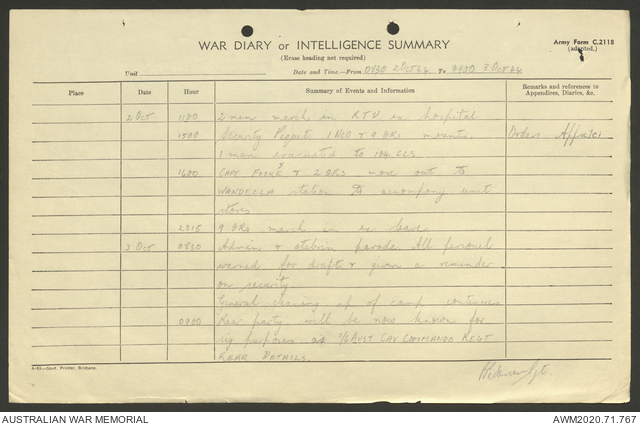 WAR DIARY or INTELLIGENCE SUMMARY
(Erase heading not required)
Army Form C.2118
(adapted.)
Unit
Date and Time—From 0830 2 Oct 44 To 0900 3 Oct 44
Place Date Hour Summary of Events and Information Remarks and references to Appendices, Diaries, &c.
2 Oct 1100 2 men march in R.T.U ex hospital
1500 Security Piquet 1 NCO & 9 ORs mounts. Orders
1 man evacuated to 104 CCS
1600 CAPT & 2 ORS move out to
WANDECLA station to accompany unit
stores
2015 9 ORs march in ex leave
3 Oct 0830 Admin & atebrin parade. All personel
warned for draft & given a reminder
on security
General cleaning up of camp continues
0900 Rear party will be now known for
sig purposes as 2/6 AUST CAV COMMANDO REGT
REAR DETAILS.
4-43—Govt. Printer, Brisbane.
AUSTRALIAN WAR MEMORIAL
AWM2020.71.767